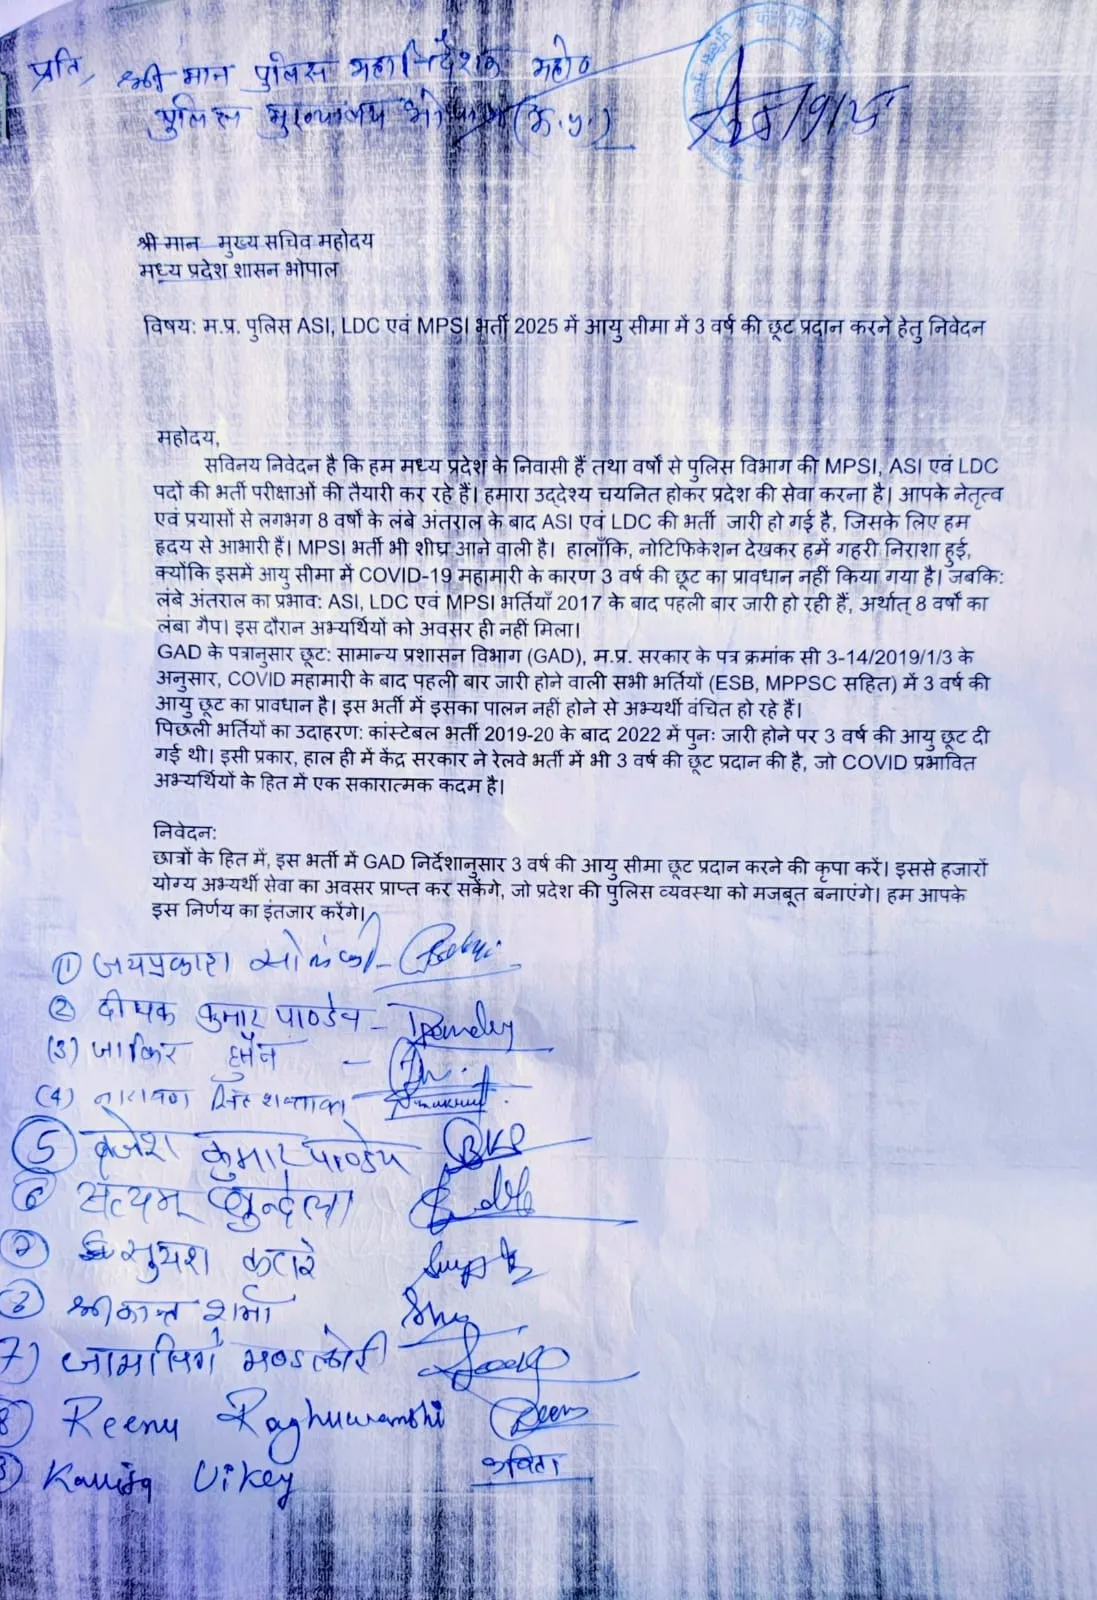 प्रति,
श्री मान पुलिस महानिर्देशक महो०
पुलिस मुख्यालय भोपाल (म.प्र.)
श्री मान मुख्य सचिव महोदय
मध्य प्रदेश शासन भोपाल
विषय: म.प्र. पुलिस ASI, LDC एवं MPSI भर्ती 2025 में आयु सीमा में 3 वर्ष की छूट प्रदान करने हेतु निवेदन
महोदय,
सविनय निवेदन है कि हम मध्य प्रदेश के निवासी हैं तथा वर्षों से पुलिस विभाग की MPSI, ASI एवं LDC
पदों की भर्ती परीक्षाओं की तैयारी कर रहे हैं। हमारा उद्देश्य चयनित होकर प्रदेश की सेवा करना है। आपके नेतृत्व
एवं प्रयासों से लगभग 8 वर्षों के लंबे अंतराल के बाद ASI एवं LDC की भर्ती जारी हो गई है, जिसके लिए हम
हृदय से आभारी हैं। MPSI भर्ती भी शीघ्र आने वाली है। हालाँकि, नोटिफिकेशन देखकर हमें गहरी निराशा हुई,
क्योंकि इसमें आयु सीमा में COVID-19 महामारी के कारण 3 वर्ष की छूट का प्रावधान नहीं किया गया है। जबकि:
लंबे अंतराल का प्रभाव: ASI, LDC एवं MPSI भर्तियाँ 2017 के बाद पहली बार जारी हो रही हैं, अर्थात् 8 वर्षों का
लंबा गैप। इस दौरान अभ्यर्थियों को अवसर ही नहीं मिला।
GAD के पत्रानुसार छूट: सामान्य प्रशासन विभाग (GAD), म.प्र. सरकार के पत्र क्रमांक सी 3-14/2019/1/3 के
अनुसार, COVID महामारी के बाद पहली बार जारी होने वाली सभी भर्तियों (ESB, MPPSC सहित) में 3 वर्ष की
आयु छूट का प्रावधान है। इस भर्ती में इसका पालन नहीं होने से अभ्यर्थी वंचित हो रहे हैं।
पिछली भर्तियों का उदाहरण: कांस्टेबल भर्ती 2019-20 के बाद 2022 में पुनः जारी होने पर 3 वर्ष की आयु छूट दी
गई थी। इसी प्रकार, हाल ही में केंद्र सरकार ने रेलवे भर्ती में भी 3 वर्ष की छूट प्रदान की है, जो COVID प्रभावित
अभ्यर्थियों के हित में एक सकारात्मक कदम है।
निवेदन:
छात्रों के हित में, इस भर्ती में GAD निर्देशानुसार 3 वर्ष की आयु सीमा छूट प्रदान करने की कृपा करें। इससे हजारों
योग्य अभ्यर्थी सेवा का अवसर प्राप्त कर सकेंगे, जो प्रदेश की पुलिस व्यवस्था को मजबूत बनाएंगे। हम आपके
इस निर्णय का इंतजार करेंगे।
(1) जयप्रकाश सोलंकी -
(2) दीपक कुमार पाण्डेय - DPandey
(3) जाकिर हुसैन -
(4) नारायण सिंह
(5) बृजेश कुमार पाण्डेय BKP
(6) सत्यम बुन्देला
(7) सुयश कटारे
श्रीकान्त शर्मा
7)
8) Reenu Raghuwanshi Reenu
Kavita Uikey कविता